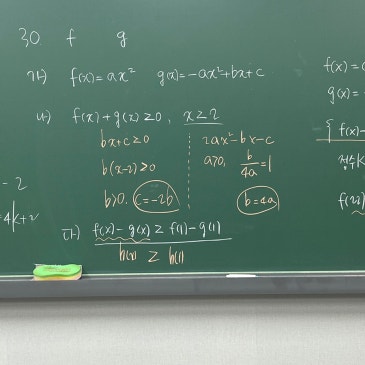 30. f g
가) f(x)=ax² g(x)=-ax²+bx+c
나) f(x)+g(x)≥0, x≥2
bx+c≥0
b(x-2)≥0
b>0, c=-2b
2ax²-bx-c
a>0, b/4a=1
b=4a
다) f(x)-g(x) ≥ f(1)-g(1)
h(x) ≥ h(1)
-2
=4k+2
f(x)=
g(x)=
{ f(x)-
정수k